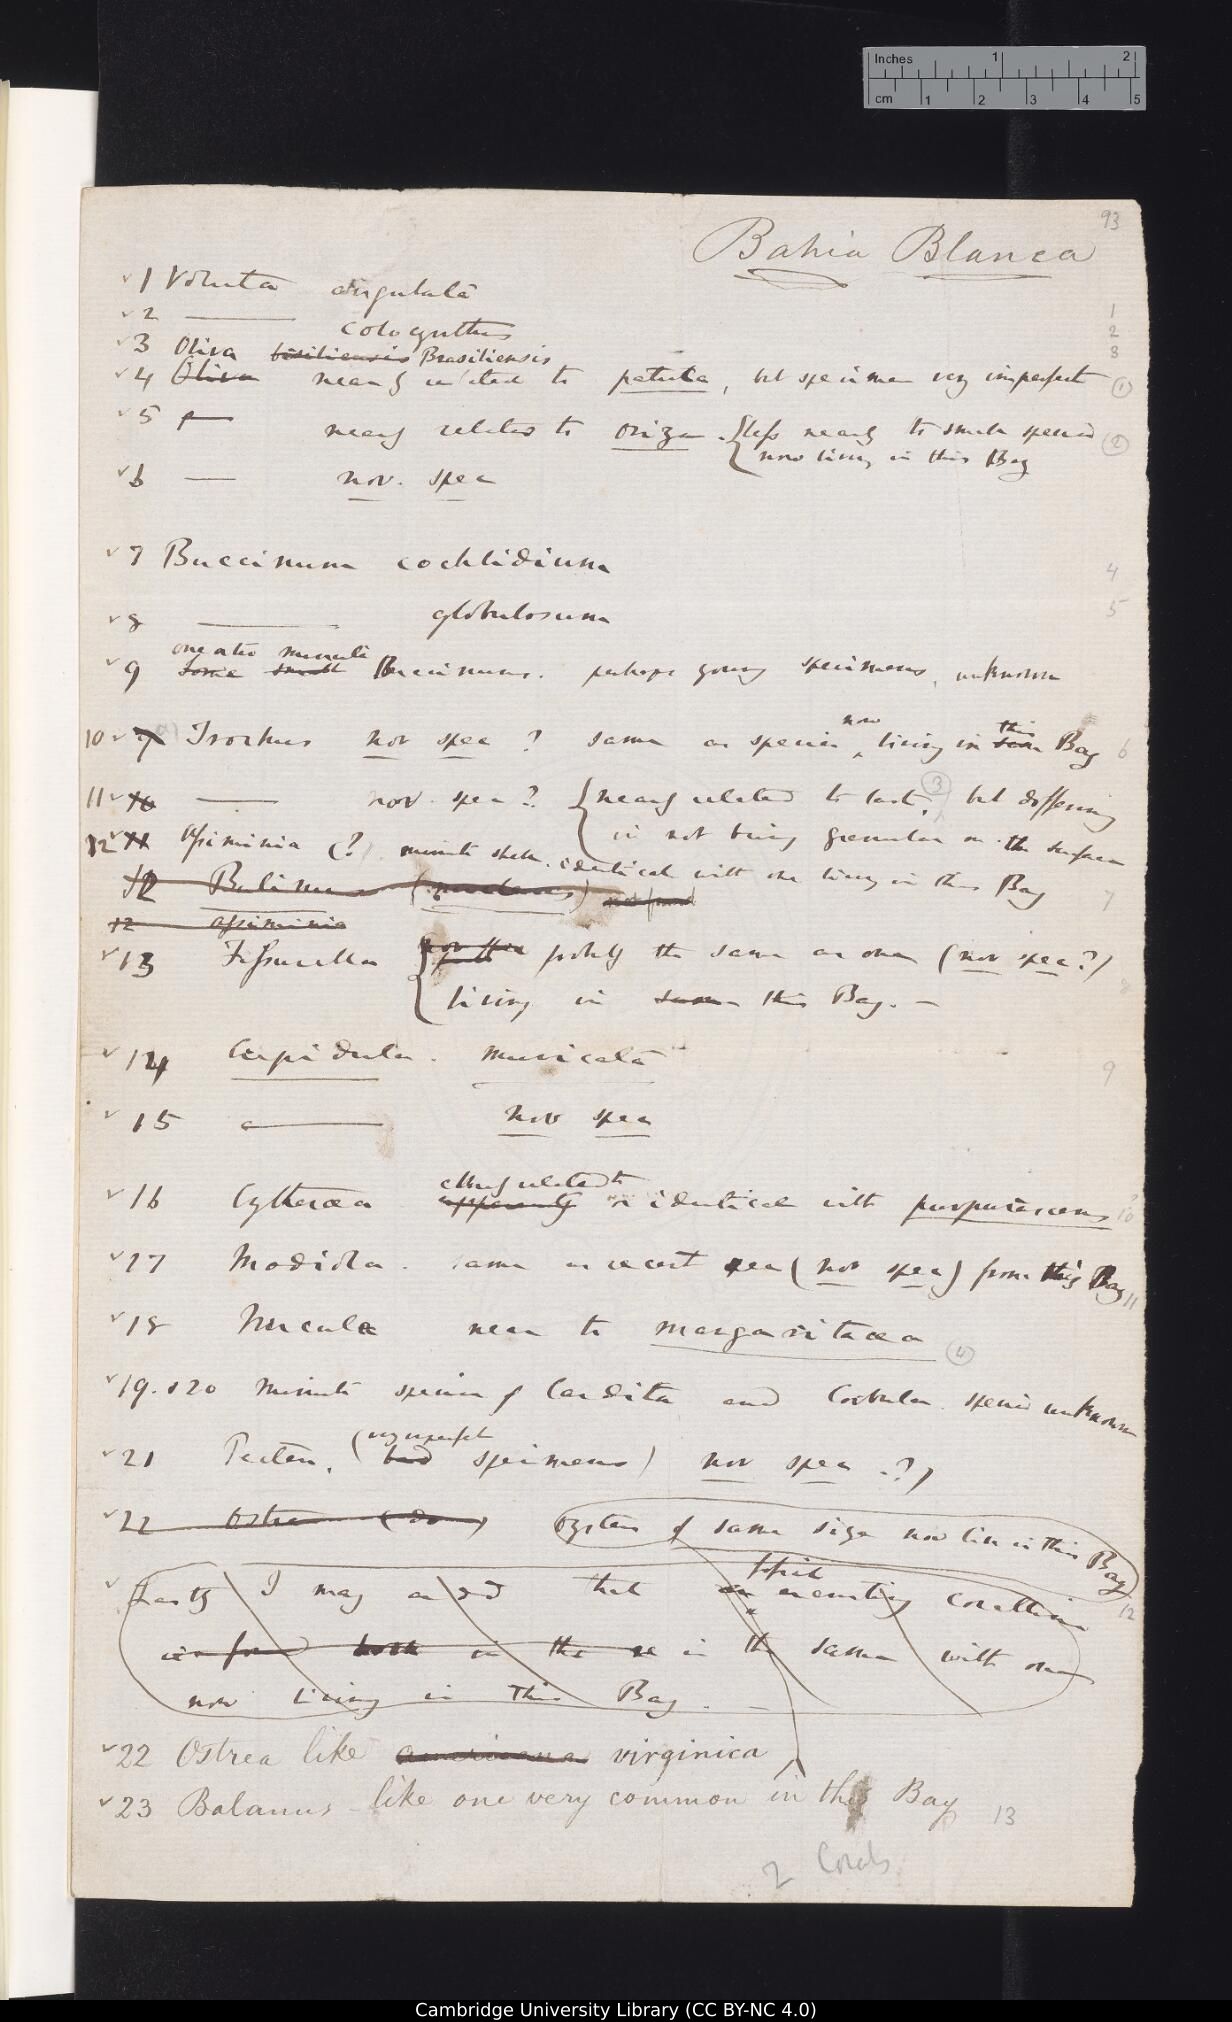 Inches 1 2
cm 1 2 3 4 5
93
Bahia Blanca
v 1 Voluta angulata 1
v 2 —— colocynthis 2
v 3 Oliva brisiliensis Brasiliensis 3
v 4 Oliva nearly related to patula, but specimen very imperfect (1)
v 5 — nearly related to oriza. {less nearly to small species (2)
now living in this Bay
v 6 — nov. spec
v 7 Buccinum cochlidium 4
v 8 —— globulosum 5
one or two minute
v 9 some small Buccinums. perhaps young specimens, unknown
now this
10 v 9 Trochus nov spec ? same as species ^ living in same Bay 6
11 v 10 —— nov. spec ? {nearly related to last, (3) but differing
in not being granular on the surface
12 v 11 Assiminia (?) minute shell. identical with one living in this Bay 7
12 Bulimus not found
12 assiminia
v 13 Fissurella {nov spec probly the same as one (nov spec?) 8
living in same this Bay. —
v 14 Crepidula. muricata 9
v 15 —— nov spec
closely related to
v 16 Cytheraea apparently or identical with purpurascens 10
v 17 Modiola. same as recent spec (nov spec) from this Bay 11
v 18 Nucula near to margaritacea (4)
v 19. & 20 minute species of Cardita and Corbula. species unknown
very imperfect
v 21 Pecten. (bad specimens) nov spec .?)
v 22 Ostrea (do) Oysters of same size now live in this Bay
fossil
v Lastly I may add that an encrusting coralline 12
is found both in the in the same with one
now living in this Bay. —
v 22 Ostrea like americana virginica
v 23 Balanus like one very common in this Bay 13
2 Corals
Cambridge University Library (CC BY-NC 4.0)